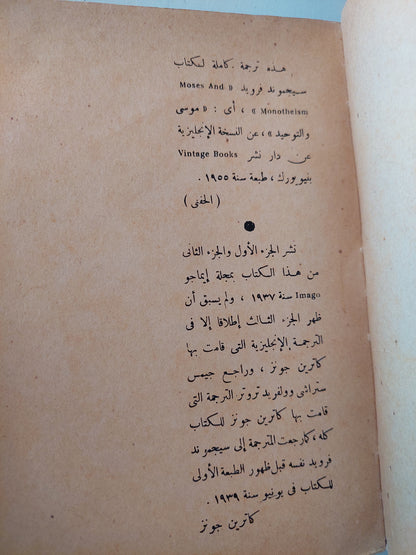 هذه ترجمة كاملة لكتاب
سيجموند فرويد « Moses And
Monotheism » ، أى : « موسى
والتوحيد » ، عن النسخة الإنجليزية
عن دار نشر Vintage Books
بنيويورك ، طبعة سنة ١٩٥٥ .
( الحفنى )
نشر الجزء الأول والجزء الثانى
من هذا الكتاب بمجلة إيماجو
Imago سنة ١٩٣٧ ، ولم يسبق أن
ظهر الجزء الثالث إطلاقا إلا فى
الترجمة الإنجليزية التى قامت بها
كاترين جونز ، وراجع جيمس
ستراشى وولفريد تروتر الترجمة التى
قامت بها كاترين جونز للكتاب
كله ، كما رجعت المترجمة إلى سيجموند
فرويد نفسه قبل ظهور الطبعة الأولى
للكتاب فى يونيو سنة ١٩٣٩ .
كاترين جونز